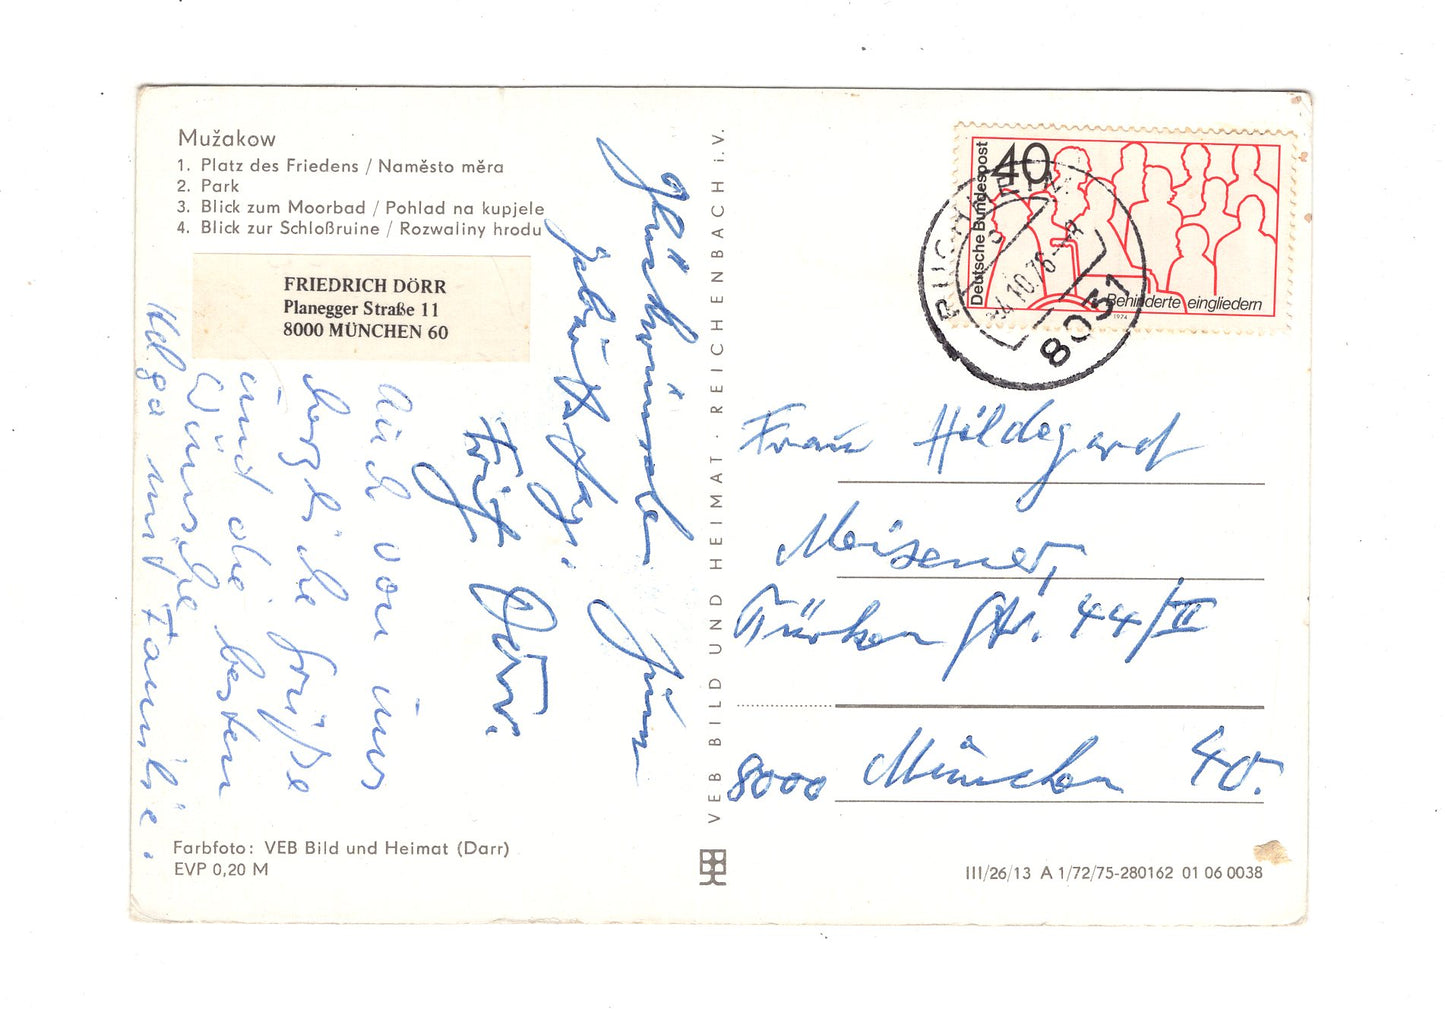 Mužakow
1. Platz des Friedens / Naměsto měra
2. Park
3. Blick zum Moorbad / Pohlad na kupjele
4. Blick zur Schloßruine / Rozwaliny hrodu
FRIEDRICH DÖRR
Planegger Straße 11
8000 MÜNCHEN 60
Glückwünsche zum
Geburtstag.
Fritz Dörr.
Auch von uns
herzliche Grüße
und die besten
Wünsche
Helga mit Familie.
Farbfoto: VEB Bild und Heimat (Darr)
EVP 0,20 M
VEB BILD UND HEIMAT · REICHENBACH i. V.
40
Deutsche Bundespost
Behinderte eingliedern
1974
10.76
8031
Frau Hildegard
Meisener,
Türken Str. 44/II
8000 München 40.
III/26/13 A 1/72/75-280162 01 06 0038